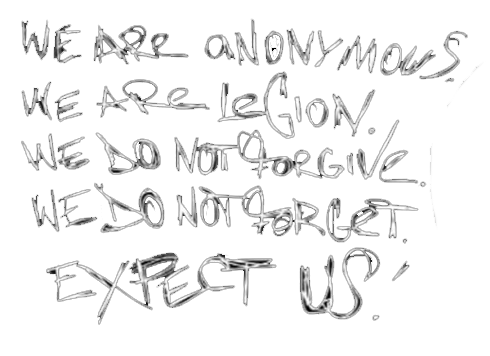 WE ARE aNONYMOUS.
WE ARE LeGION.
WE DO NOT FORGIVE.
WE DO NOT FORGeT.
EXPECT US!